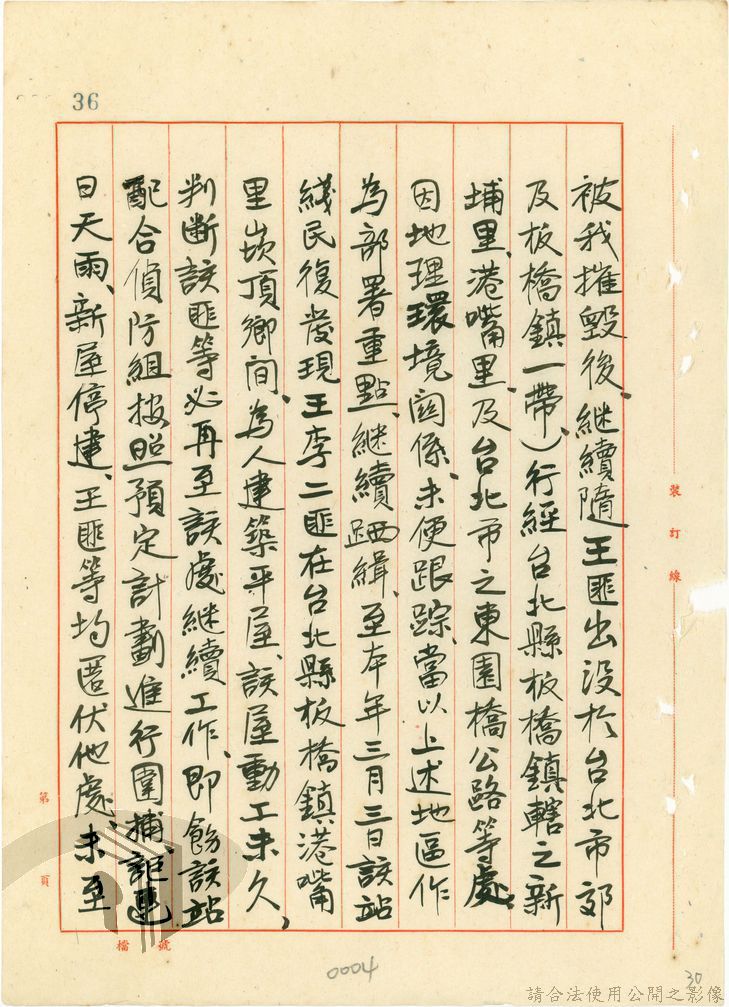 36
被我摧毀後、繼續隨王匪出没於台北市郊
及板橋鎮一帶、）行經台北縣板橋鎮轄之新
埔里、港嘴里、及台北市之東園橋公路等處、
因地理環境關係、未便跟踪、當以上述地區作
為部署重點、繼續跴緝、至本年三月三日該站
綫民復發現王李二匪在台北縣板橋鎮港嘴
里崁頂鄉間、為人建築平屋、該屋動工未久、
判斷該匪等必再至該處繼續工作、即飭該站
配合偵防組按照預定計劃進行圍捕、詎連
日天雨、新屋停建、王匪等均匿伏他處、未至
裝訂線
第 頁
檔 號
0004
30
請合法使用公開之影像